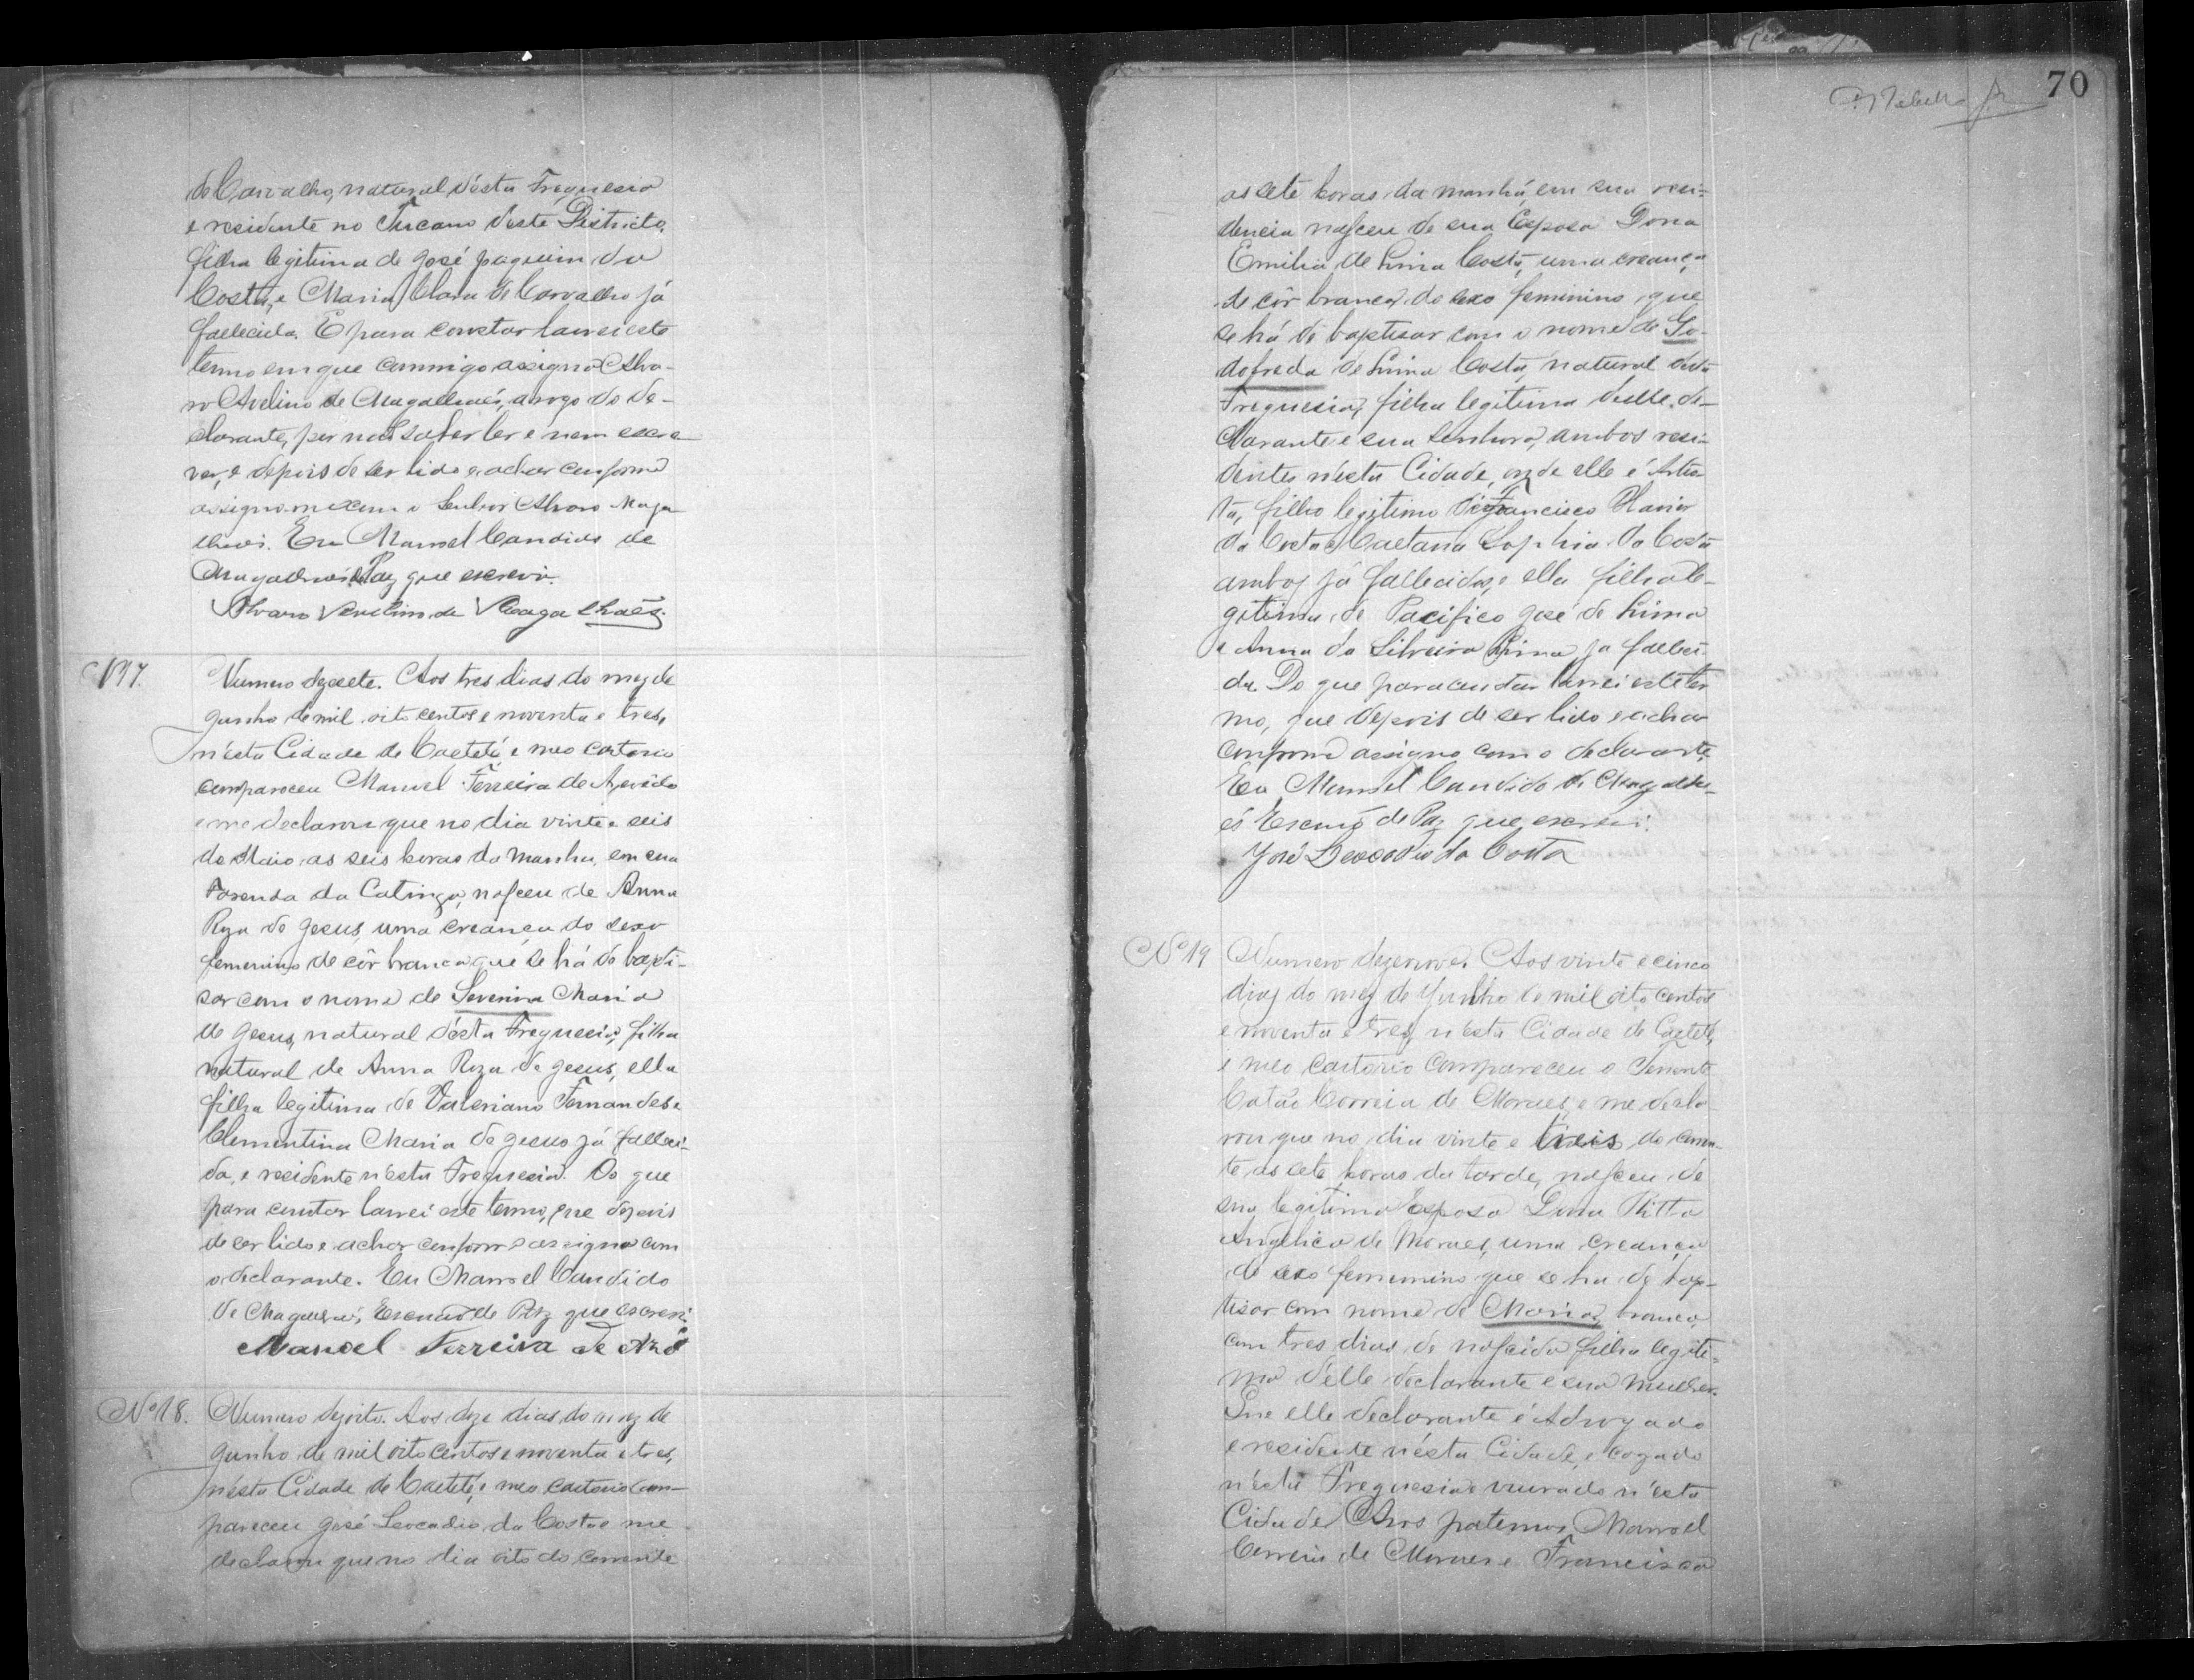 de Carvalho, natural d'ésta Freguesia
e residente no Tucano deste Districto,
filha legitima de José Joaquim da
Costa, e Maria Clara de Carvalho já
fallecida. E para constar lavrei este
termo em que commigo assigna Alva-
ro Avelino de Magalhaés, a rogo do de-
clarante, por não saber ler e nem escre
ver, e depois de ser lido e achar conforme
assigno-me com o Senhor Alvaro Maga
lhaes. Eu Manoel Candido de
Magalhaes de Paz que escrevi.
Alvaro Avelino de Magalhaẽs.
Nº 17.
Numero dezesete. Aos tres dias do mez de
Junho de mil oito centos e noventa e tres,
n'ésta Cidade de Caeteté, e meo cartorio
compareceu Manoel Ferreira de Azevêdo
e me declarou que no dia vinte e seis
de Maio, as seis horas da manha, em sua
Fasenda da Catinga, nasceu de Anna
Roza de Jesus, uma creança do sexo
femenino de côr branca que se há de bapti-
sar com o nome de Severina Maria
de Jesus, natural d'ésta Freguesia, filha
natural de Anna Roza de Jesus, ella
filha legitima de Valeriano Fernandes e
Clementina Maria de Jesus já falleci-
da, e residente n'ésta Freguesia. Do que
para constar lavrei este termo, que depois
de ser lido e achar conforme assigno com
o declarante. Eu Manoel Candido
de Magalhaés, Escrivão de Paz que escrevi.
Manoel Ferreira de Azº
Nº 18.
Numero dezoito. Aos doze dias do mez de
Junho de mil oito centos e noventa e tres,
n'ésta Cidade de Caeteté, e meo cartorio com-
pareceu José Leocadio da Costa e me
declarou que no dia oito do corrente
70
as sete horas da manhá, em sua resi-
dencia nasceu de sua Esposa Dona
Emilia de Lima Costa, uma creança
de côr branca do sexo feminino, que
se há de baptisar com o nome de Go-
dofreda de Lima Costa, natural desta
Freguesia, filha legitima delle de-
clarante e sua Senhora, ambos resi-
dentes n'ésta Cidade, onde elle é Artis-
ta, filho legitimo de Francisco Xavier
da Costa e Caetana Sophia da Costa
ambos já fallecidos, e ella filha le-
gitima de Pacifico José de Lima
e Anna da Silveira Lima já falleci-
da. Do que para constar lavrei este ter
mo, que depois de ser lido e achar
conforme assigno com o declarante.
Eu Manoel Candido de Magalha-
és Escrivão de Paz que escrevi.
José Leocadio da Costa
Nº 19
Numero dezenove. Aos vinte e cinco
dias do mez de Junho de mil oito centos
e noventa e tres, n'ésta Cidade de Caeteté,
e meo cartorio compareceu o Tenente
Catão Correia de Moraes, e me decla
rou que no dia vinte e treis do corren
te, as sete horas da tarde, nasceu de
sua legitima Esposa Dona Ritta
Angelica de Moraes, uma creança
do sexo femenino que se ha de bap-
tisar com nome de Maria, branca,
com tres dias de nascida filha legiti-
ma d'elle declarante e sua mulher.
Que elle declarante é Advogado
e residente n'ésta Cidade, e cazado
n'ésta Freguesia e morado n'ésta
Cidade. Avos paternos Manoel
Correia de Moraes e Francisca